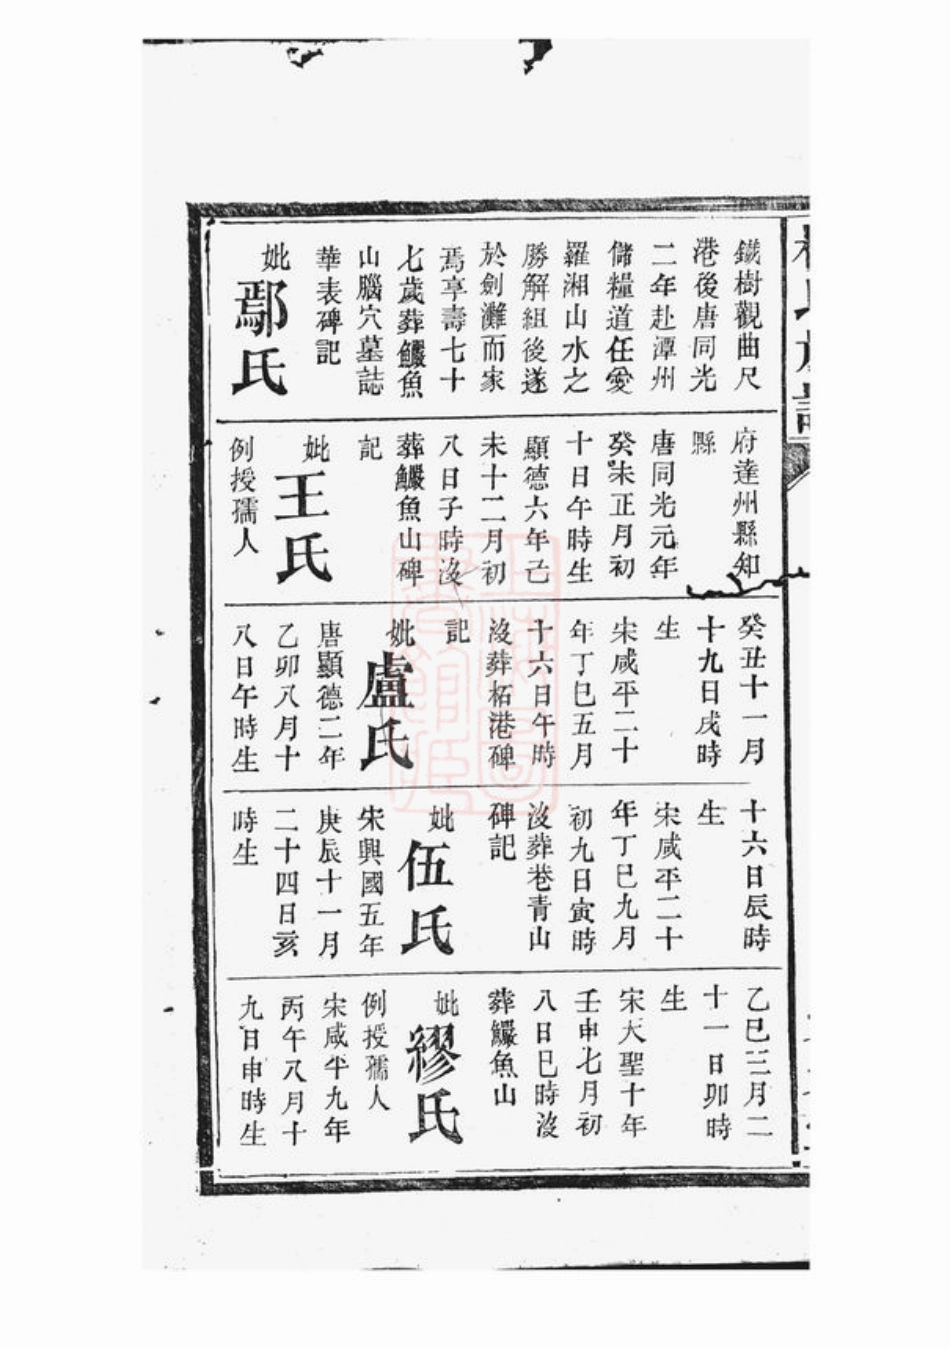 鐵樹觀曲尺
港後唐同光
二年赴潭州
儲糧道任愛
羅湘山水之
勝解組後遂
於劍灘而家
焉享壽七十
七歲葬鱺魚
山腦穴墓誌
華表碑記
妣鄢氏
府達州縣知
縣
唐同光元年
癸未正月初
十日午時生
顯德六年己
未十二月初
八日子時沒
葬鱺魚山碑
記
妣王氏
例授孺人
癸丑十一月
十九日戌時
生
宋咸平二十
年丁巳五月
十六日午時
沒葬柘港碑
記
妣盧氏
唐顯德二年
乙卯八月十
八日午時生
十六日辰時
生
宋咸平二十
年丁巳九月
初九日寅時
沒葬巷青山
碑記
妣伍氏
宋興國五年
庚辰十一月
二十四日亥
時生
乙巳三月二
十一日卯時
生
宋天聖十年
壬申七月初
八日巳時沒
葬鱺魚山
妣繆氏
例授孺人
宋咸平九年
丙午八月十
九日申時生